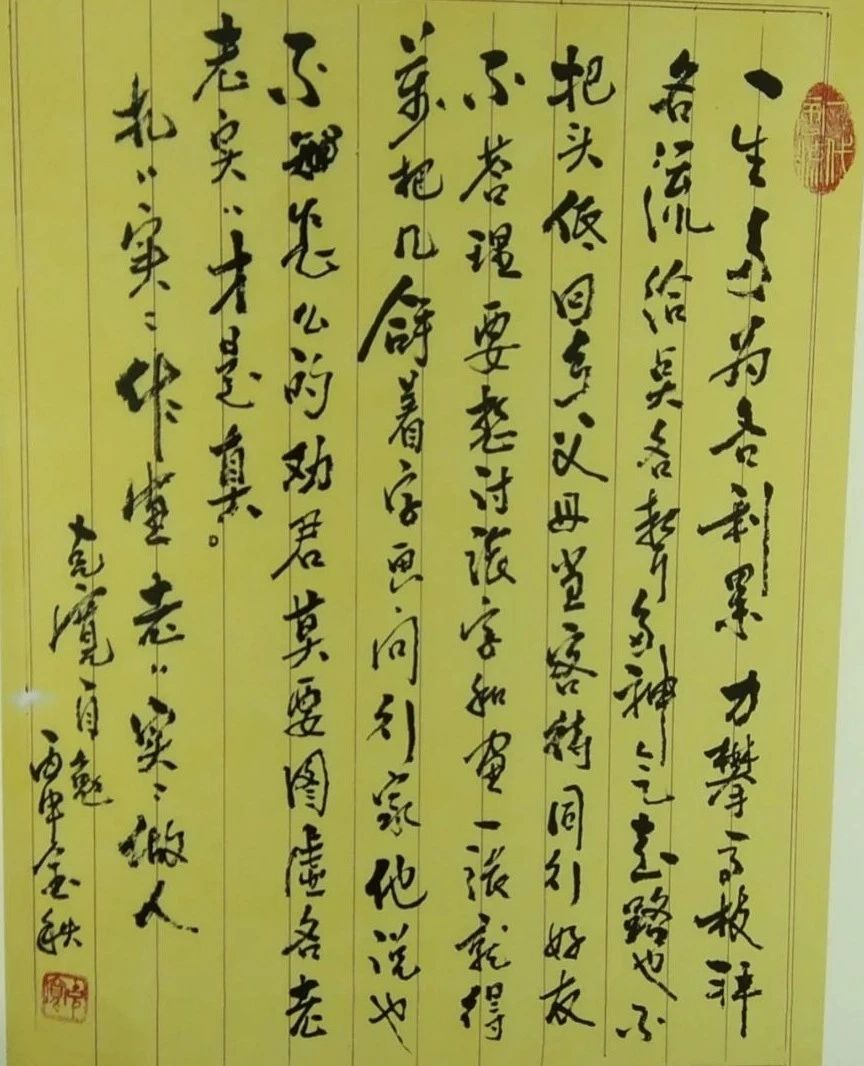 一生 为名利累 力攀高枝拜
名流 给点名 多神气 走路也不
把头低 回家父母当客待 同行好友
不答理 要想讨张字和画 一张就得
萬把几 拿着字画问行家 他说也
不知怎么的 劝君莫要图虚名 老
老实〃才是真。
扎〃实〃作画 老〃实〃做人
克宽自勉
丙申金秋